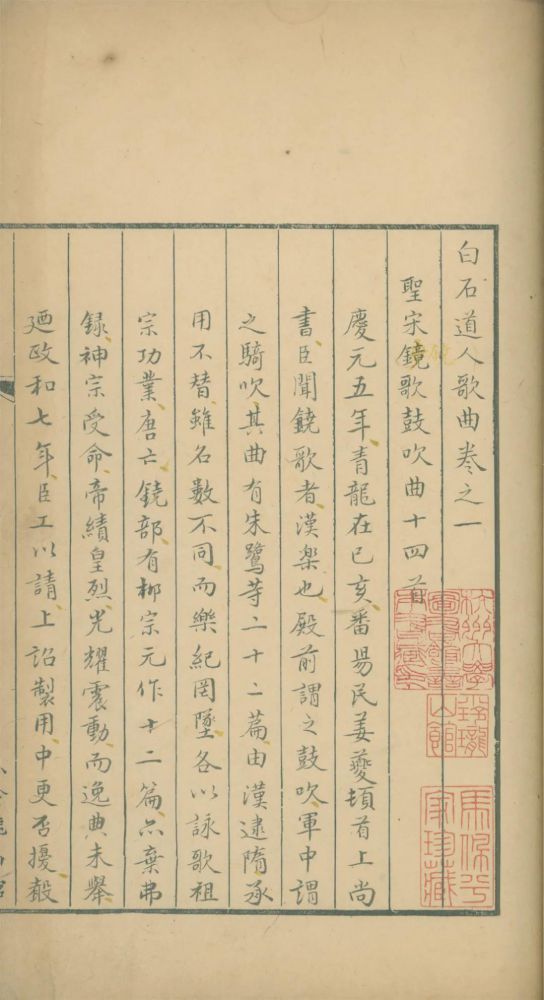 白石道人歌曲卷之一
聖宋鐃歌鼓吹曲十四首
慶元五年青龍在己亥番昜民姜夔頓首上尚
書臣聞鐃歌者漢樂也殿前謂之鼓吹軍中謂
之騎吹其曲有朱鷺等二十二篇由漢逮隋承
用不替雖名數不同而樂紀罔墜各以詠歌祖
宗功業唐亡鐃部有柳宗元作十二篇亦棄弗
錄神宗受命帝績皇烈光耀震動而逸典未舉
廼政和七年臣工以請上詔製用中更否擾殽
杭州大學圖書館
玲瓏山館
馬佩兮家珍藏